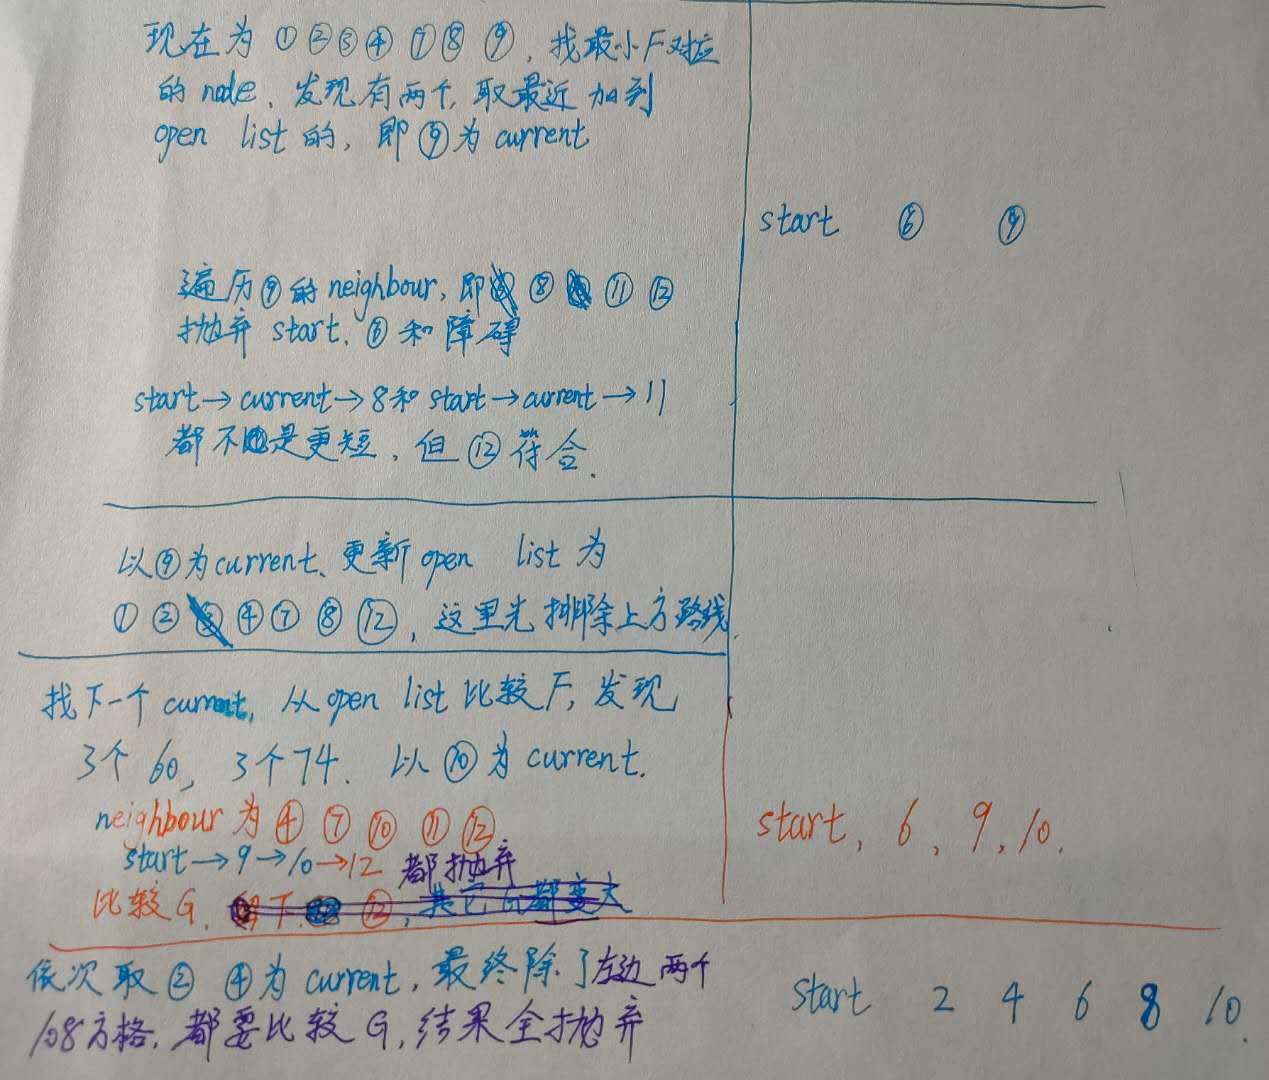 现在为 ① ② ③ ④ ⑦ ⑧ ⑨, 找最小F对应
的 node、发现有两个, 取最近加到
open list 的, 即⑨为 current
start ⑥ ⑨
遍历⑨的neighbour, 即 ⑧ ⑪ ⑫
抛弃 start、⑥和障碍
start→current→8和 start→current→11
都不是更短, 但⑫符合.
以⑨为current、更新open list 为
① ② ④ ⑦ ⑧ ⑫, 这里先排除上方路线.
找下一个 current, 从open list 比较F, 发现
3个 60, 3个74. 以⑩为 current.
neighbour 为 ④ ⑦ ⑩ ⑪ ⑫
start, 6, 9, 10.
start→9→10→12 都抛弃
比较G.
依次取② ④为 current, 最终除了左边两个
start 2 4 6 8 10.
108方格, 都要比较G, 结果全抛弃